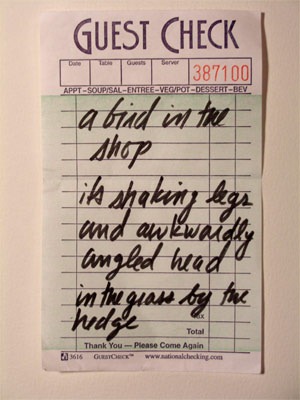 GUEST CHECK
Date Table Guests Server
387100
APPT-SOUP/SAL-ENTREE-VEG/POT-DESSERT-BEV
a bird in the
shop
its shaking legs
and awkwardly
angled head
in the grass by the
hedge
Tax
Total
Thank You — Please Come Again
3616 GUESTCHECK™ www.nationalchecking.com